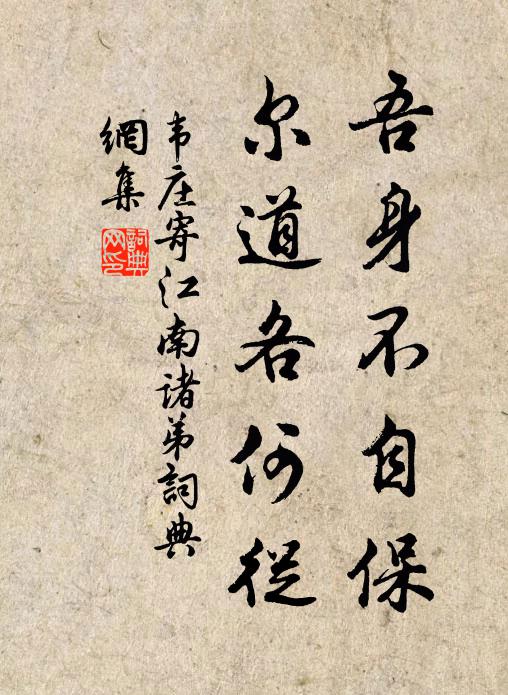 吾身不自保
尔道各何從
韦庄寄江南諸弟詞典
網集
詞典
网印